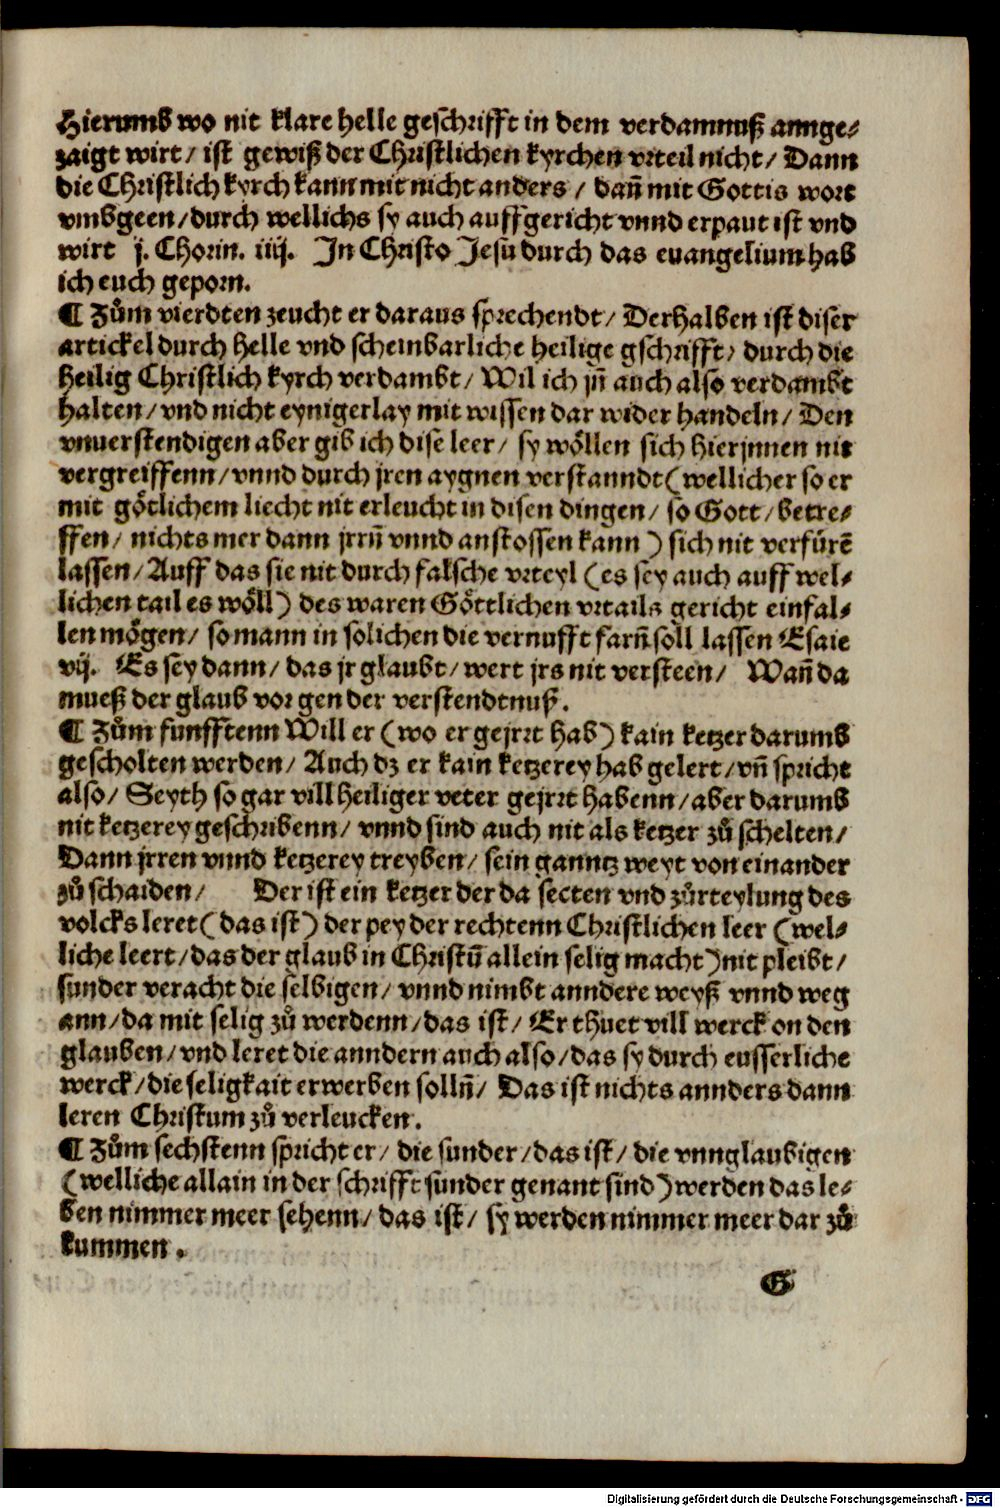 Hierumb wo nit klare helle geschrifft in dem verdamnuß annge⸗
zaigt wirt/ ist gewiß der Christlichen kyrchen vrteil nicht/ Dann
die Christlich kyrch kann mit nicht anders/ dañ mit Gottis wort
vmbgeen/durch wellichs sy auch auffgericht vnnd erpaut ist vnd
wirt j. Chorin. iiij. In Christo Jesu durch das euangelium hab
ich euch geporn.
¶ Zům vierdten zeucht er daraus sprechendt/ Derhalben ist diser
artickel durch helle vnd scheinbarliche heilige gschrifft/ durch die
heilig Christlich kyrch verdambt/ Wil ich jñ auch also verdambt
halten/vnd nicht eynigerlay mit wissen dar wider handeln/ Den
vnuerstendigen aber gib ich dise leer/ sy wöllen sich hierjnnen nit
vergreiffenn/vnnd durch jren aygnen verstanndt(wellicher so er
mit götlichem liecht nit erleucht in disen dingen/ so Gott/betre⸗
ffen/ nichts mer dann jrrñ vnnd anstossen kann) sich nit verfürē
lassen/Auff das sie nit durch falsche vrteyl (es sey auch auff wel⸗
lichen tail es wöll) des waren Göttlichen vrtails gericht einfal⸗
len mögen/ so mann in solichen die vernufft farñ soll lassen Esaie
vij. Es sey dann/das jr glaubt/wert jrs nit versteen/ Wañ da
mueß der glaub vor gen der verstendtnuß.
¶ Zům funfftenn Will er (wo er gejrrt hab) kain ketzer darumb
gescholten werden/ Auch dz er kain ketzerey hab gelert/vñ spricht
also/ Seyth so gar vill heiliger veter gejrrt habenn/aber darumb
nit ketzerey geschribenn/ vnnd sind auch nit als ketzer zů schelten/
Dann jrren vnnd ketzerey treyben/ sein ganntz weyt von einander
zů schaiden/ Der ist ein ketzer der da secten vnd zůrteylung des
volcks leret(das ist) der pey der rechtenn Christlichen leer (wel⸗
liche leert/das der glaub in Christū allein selig macht)nit pleibt/
sunder veracht die selbigen/ vnnd nimbt anndere weyß vnnd weg
ann/da mit selig zů werdenn/das ist/ Er thuet vill werck on den
glauben/vnd leret die anndern auch also/das sy durch eusserliche
werck/die seligkait erwerben sollñ/ Das ist nichts annders dann
leren Christum zů verleucken.
¶ Zům sechstenn spricht er/ die sunder/das ist/ die vnnglaubigen
(welliche allain in der schrifft sunder genant sind)werden das le⸗
ben nimmer meer sehenn/das ist/ sy werden nimmer meer dar zů
kummen.
G
Digitalisierung gefördert durch die Deutsche Forschungsgemeinschaft - DFG